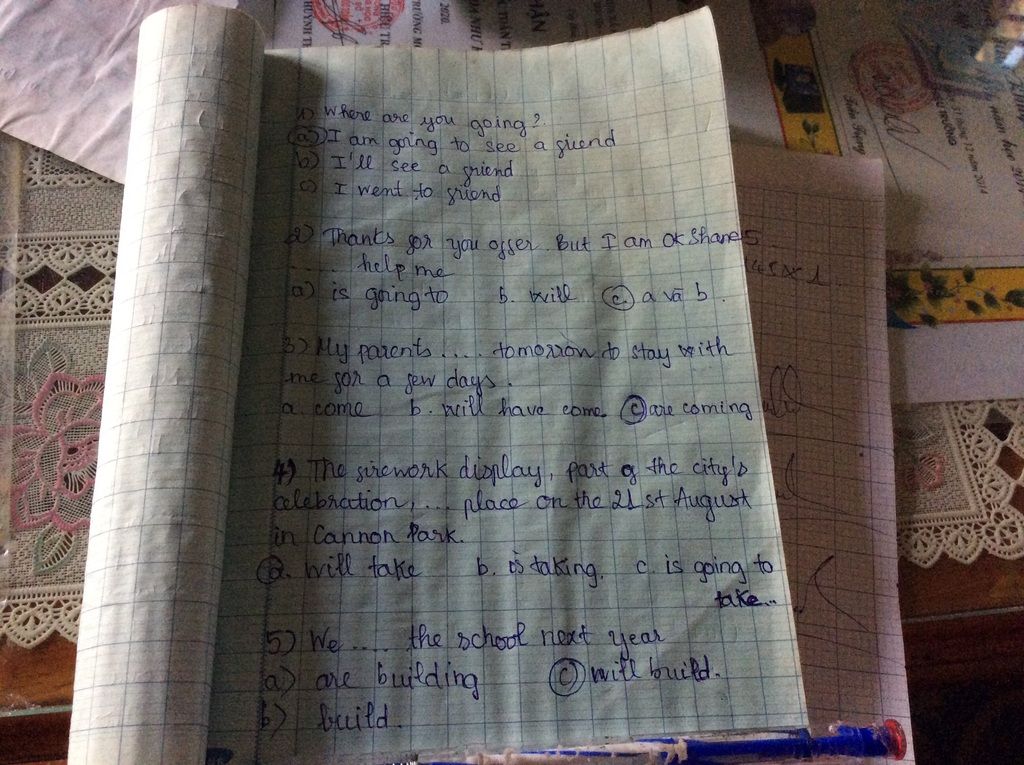 1) Where are you going?
a) I am going to see a friend
b) I'll see a friend
c) I went to friend
2) Thanks for you offer. But I am OK Shane
..... help me
a) is going to b. will c. a và b.
3) My parents .... tomorrow to stay with
me for a few days.
a. come b. will have come c) are coming
4) The firework display, part of the city's
celebration, ... place on the 21 st August
in Cannon Park.
a. Will take b. is taking. c. is going to
take...
5) We .... the school next year
a) are building c) will build.
b) build.